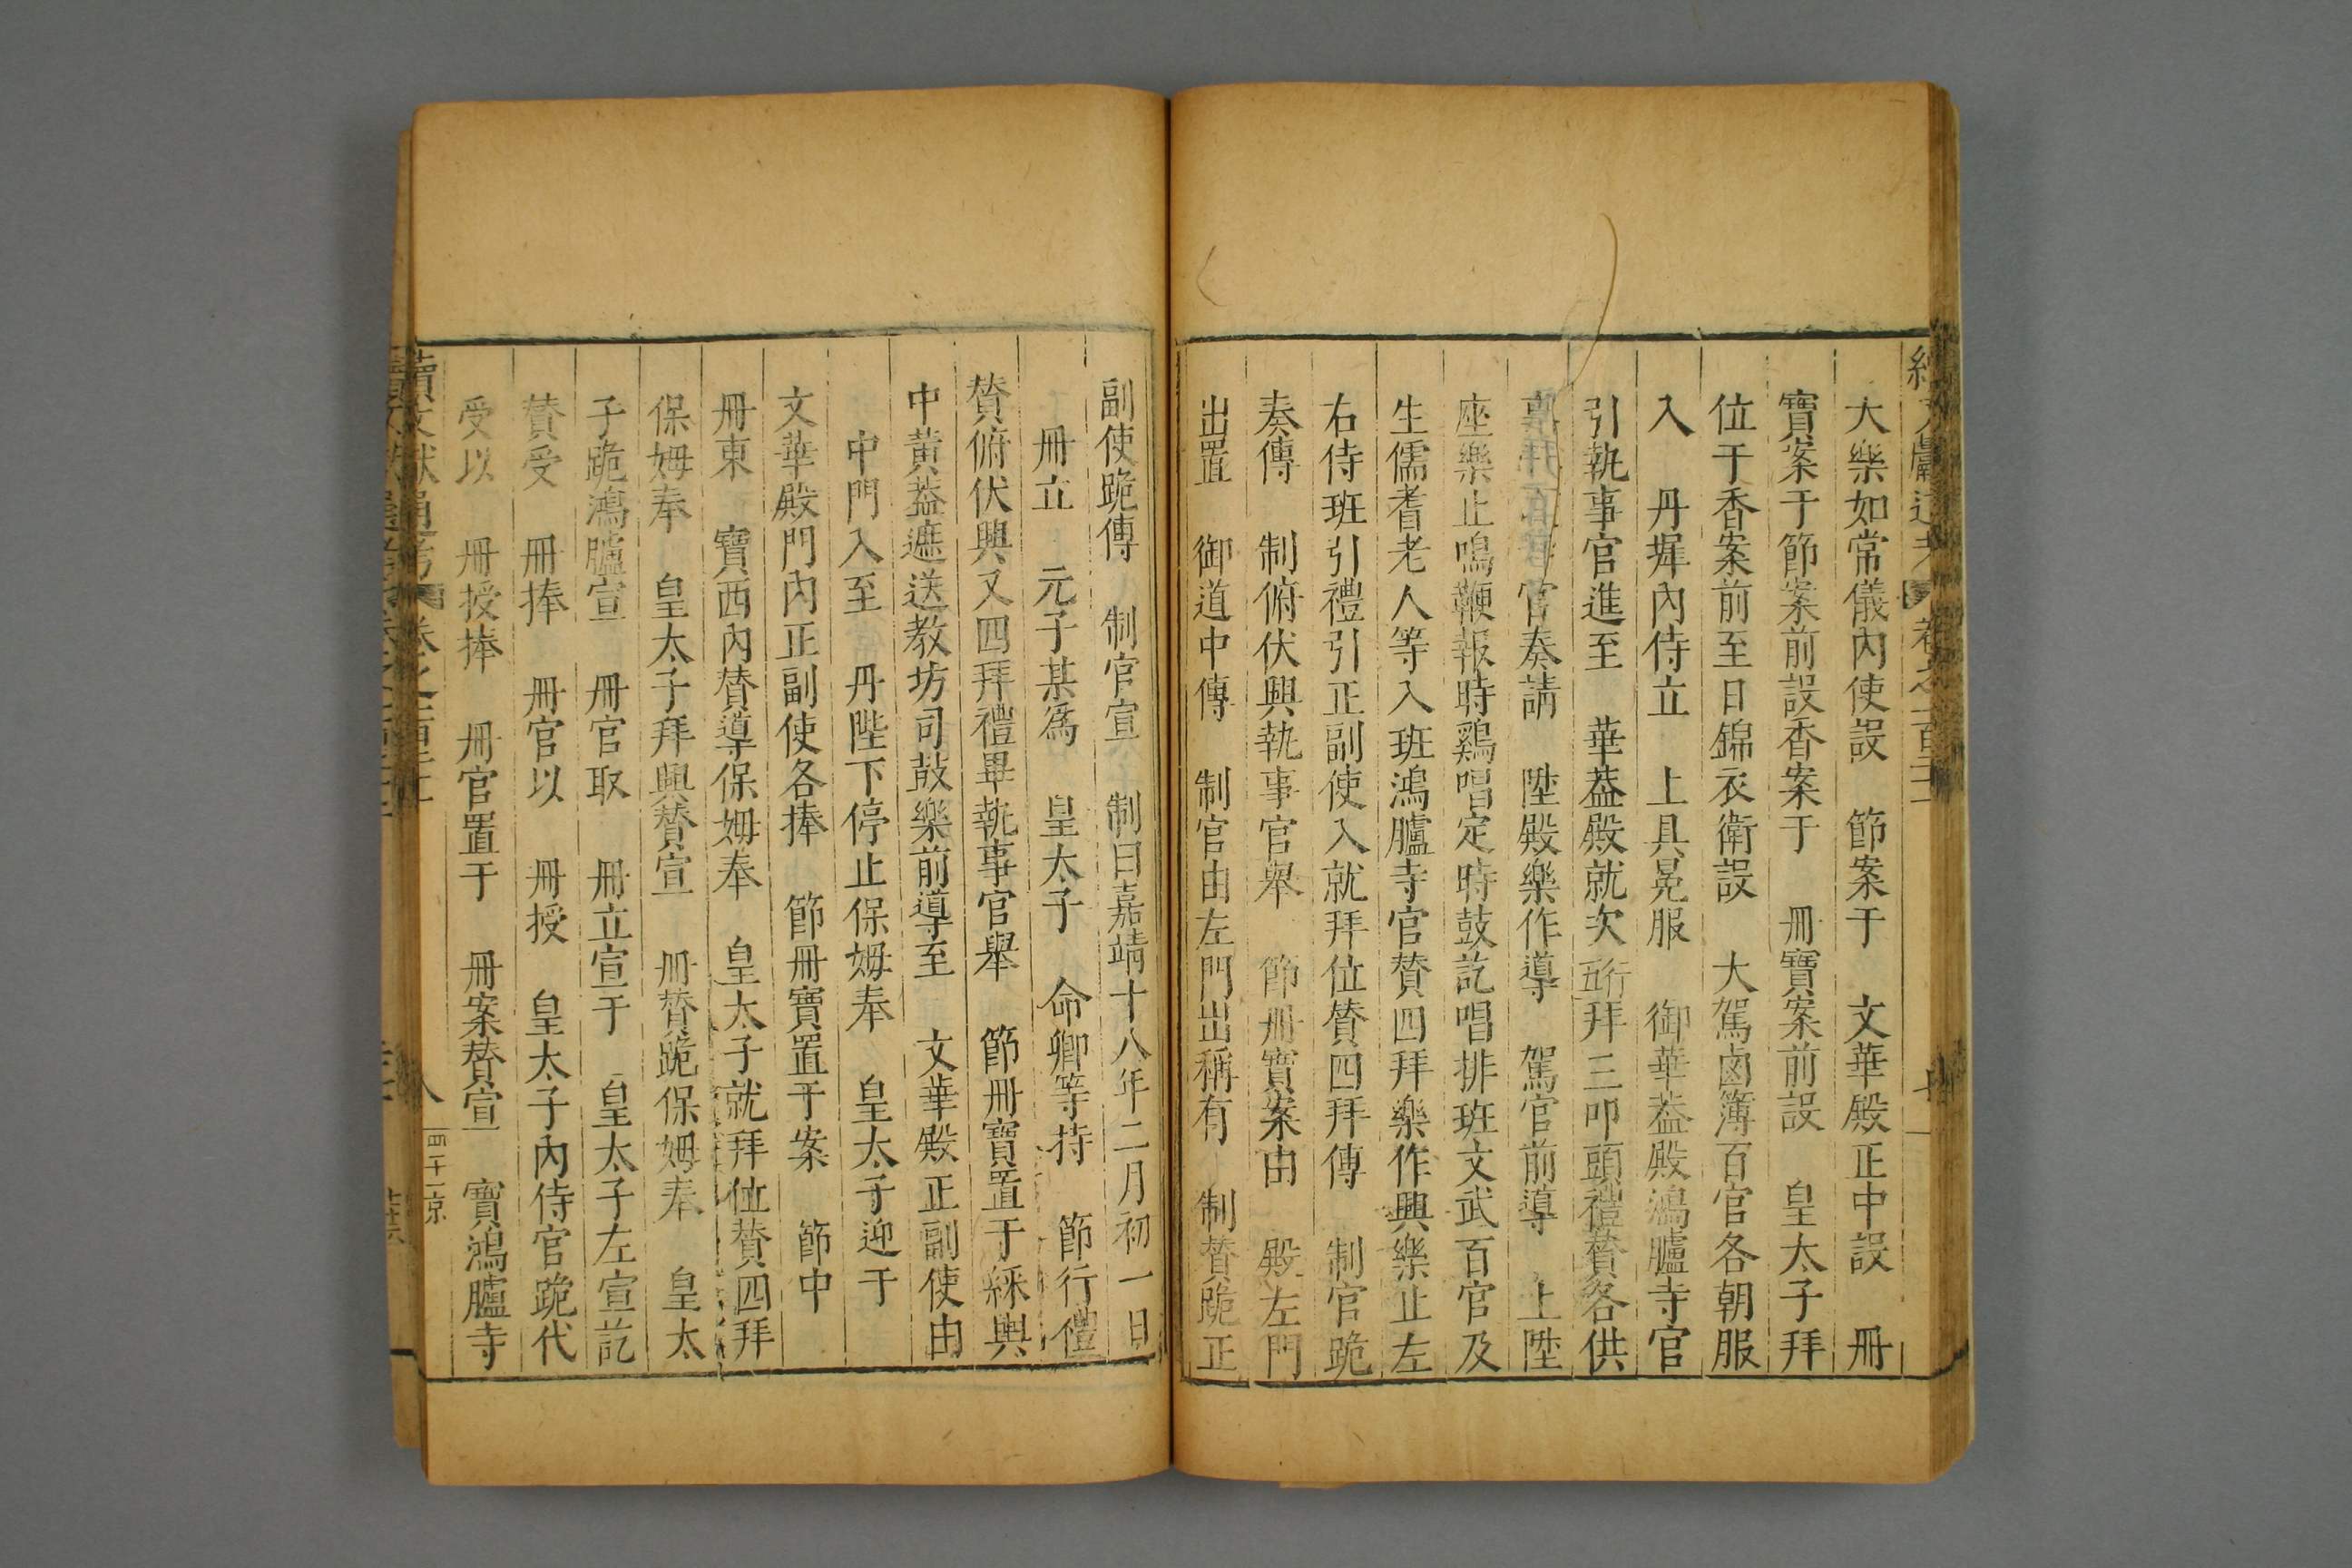 大樂如常儀內使設 節案于 文華殿正中設 冊
寶案于節案前設香案于 冊寶案前設 皇太子拜
位于香案前至日錦衣衛設 大駕鹵簿百官各朝服
入 丹墀內侍立 上具冕服 御華蓋殿鴻臚寺官
引執事官進至 華蓋殿就次 拜三叩頭禮贊各供
官奏請 陞殿樂作導 駕官前導 上陞
座樂止鳴鞭報時鷄唱定時鼓訖唱排班文武百官及
生儒耆老人等入班鴻臚寺官贊四拜樂作興樂止左
右侍班引禮引正副使入就拜位贊四拜傳 制官跪
奏傳 制俯伏興執事官舉 節冊寶案由 殿左門
出置 御道中傳 制官由左門出稱有 制贊跪正
副使跪傳 制官宣 制曰嘉靖十八年二月初一日
冊立 元子某爲 皇太子 命卿等持 節行禮
贊俯伏興又四拜禮畢執事官舉 節冊寶置于綵輿
中黃蓋遮送教坊司鼓樂前導至 文華殿正副使由
中門入至 丹陛下停止保姆奉 皇太子迎于
文華殿門內正副使各捧 節冊寶置于案 節中
冊東 寶西內贊導保姆奉 皇太子就拜位贊四拜
保姆奉 皇太子拜興贊宣 冊贊跪保姆奉 皇太
子跪鴻臚宣 冊官取 冊立宣于 皇太子左宣訖
贊受 冊捧 冊官以 冊授 皇太子內侍官跪代
受以 冊授捧 冊官置于 冊案贊宣 寶鴻臚寺